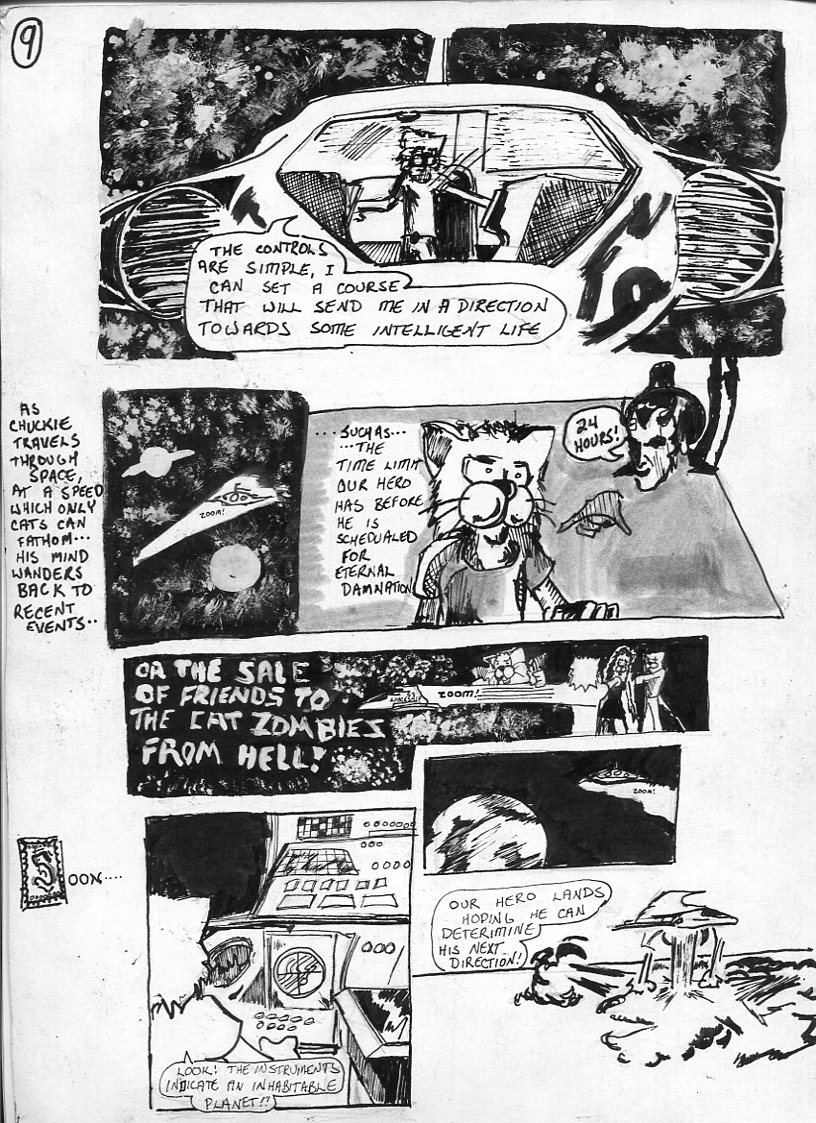 9
THE CONTROLS
ARE SIMPLE, I
CAN SET A COURSE
THAT WILL SEND ME IN A DIRECTION
TOWARDS SOME INTELLIGENT LIFE
AS
CHUCKIE
TRAVELS
THROUGH
SPACE,
AT A SPEED
WHICH ONLY
CATS CAN
FATHOM...
HIS MIND
WANDERS
BACK TO
RECENT
EVENTS..
ZOOM!
... SUCH AS...
...THE
TIME LIMIT
OUR HERO
HAS BEFORE
HE IS
SCHEDUALED
FOR
ETERNAL
DAMNATION
24
HOURS!
OR THE SALE
OF FRIENDS TO
THE CAT ZOMBIES
FROM HELL!
ZOOM!
ZOOM!
SOON....
LOOK! THE INSTRUMENTS
INDICATE AN INHABITABLE
PLANET!!
OUR HERO LANDS
HOPING HE CAN
DETERIMINE
HIS NEXT
DIRECTION!